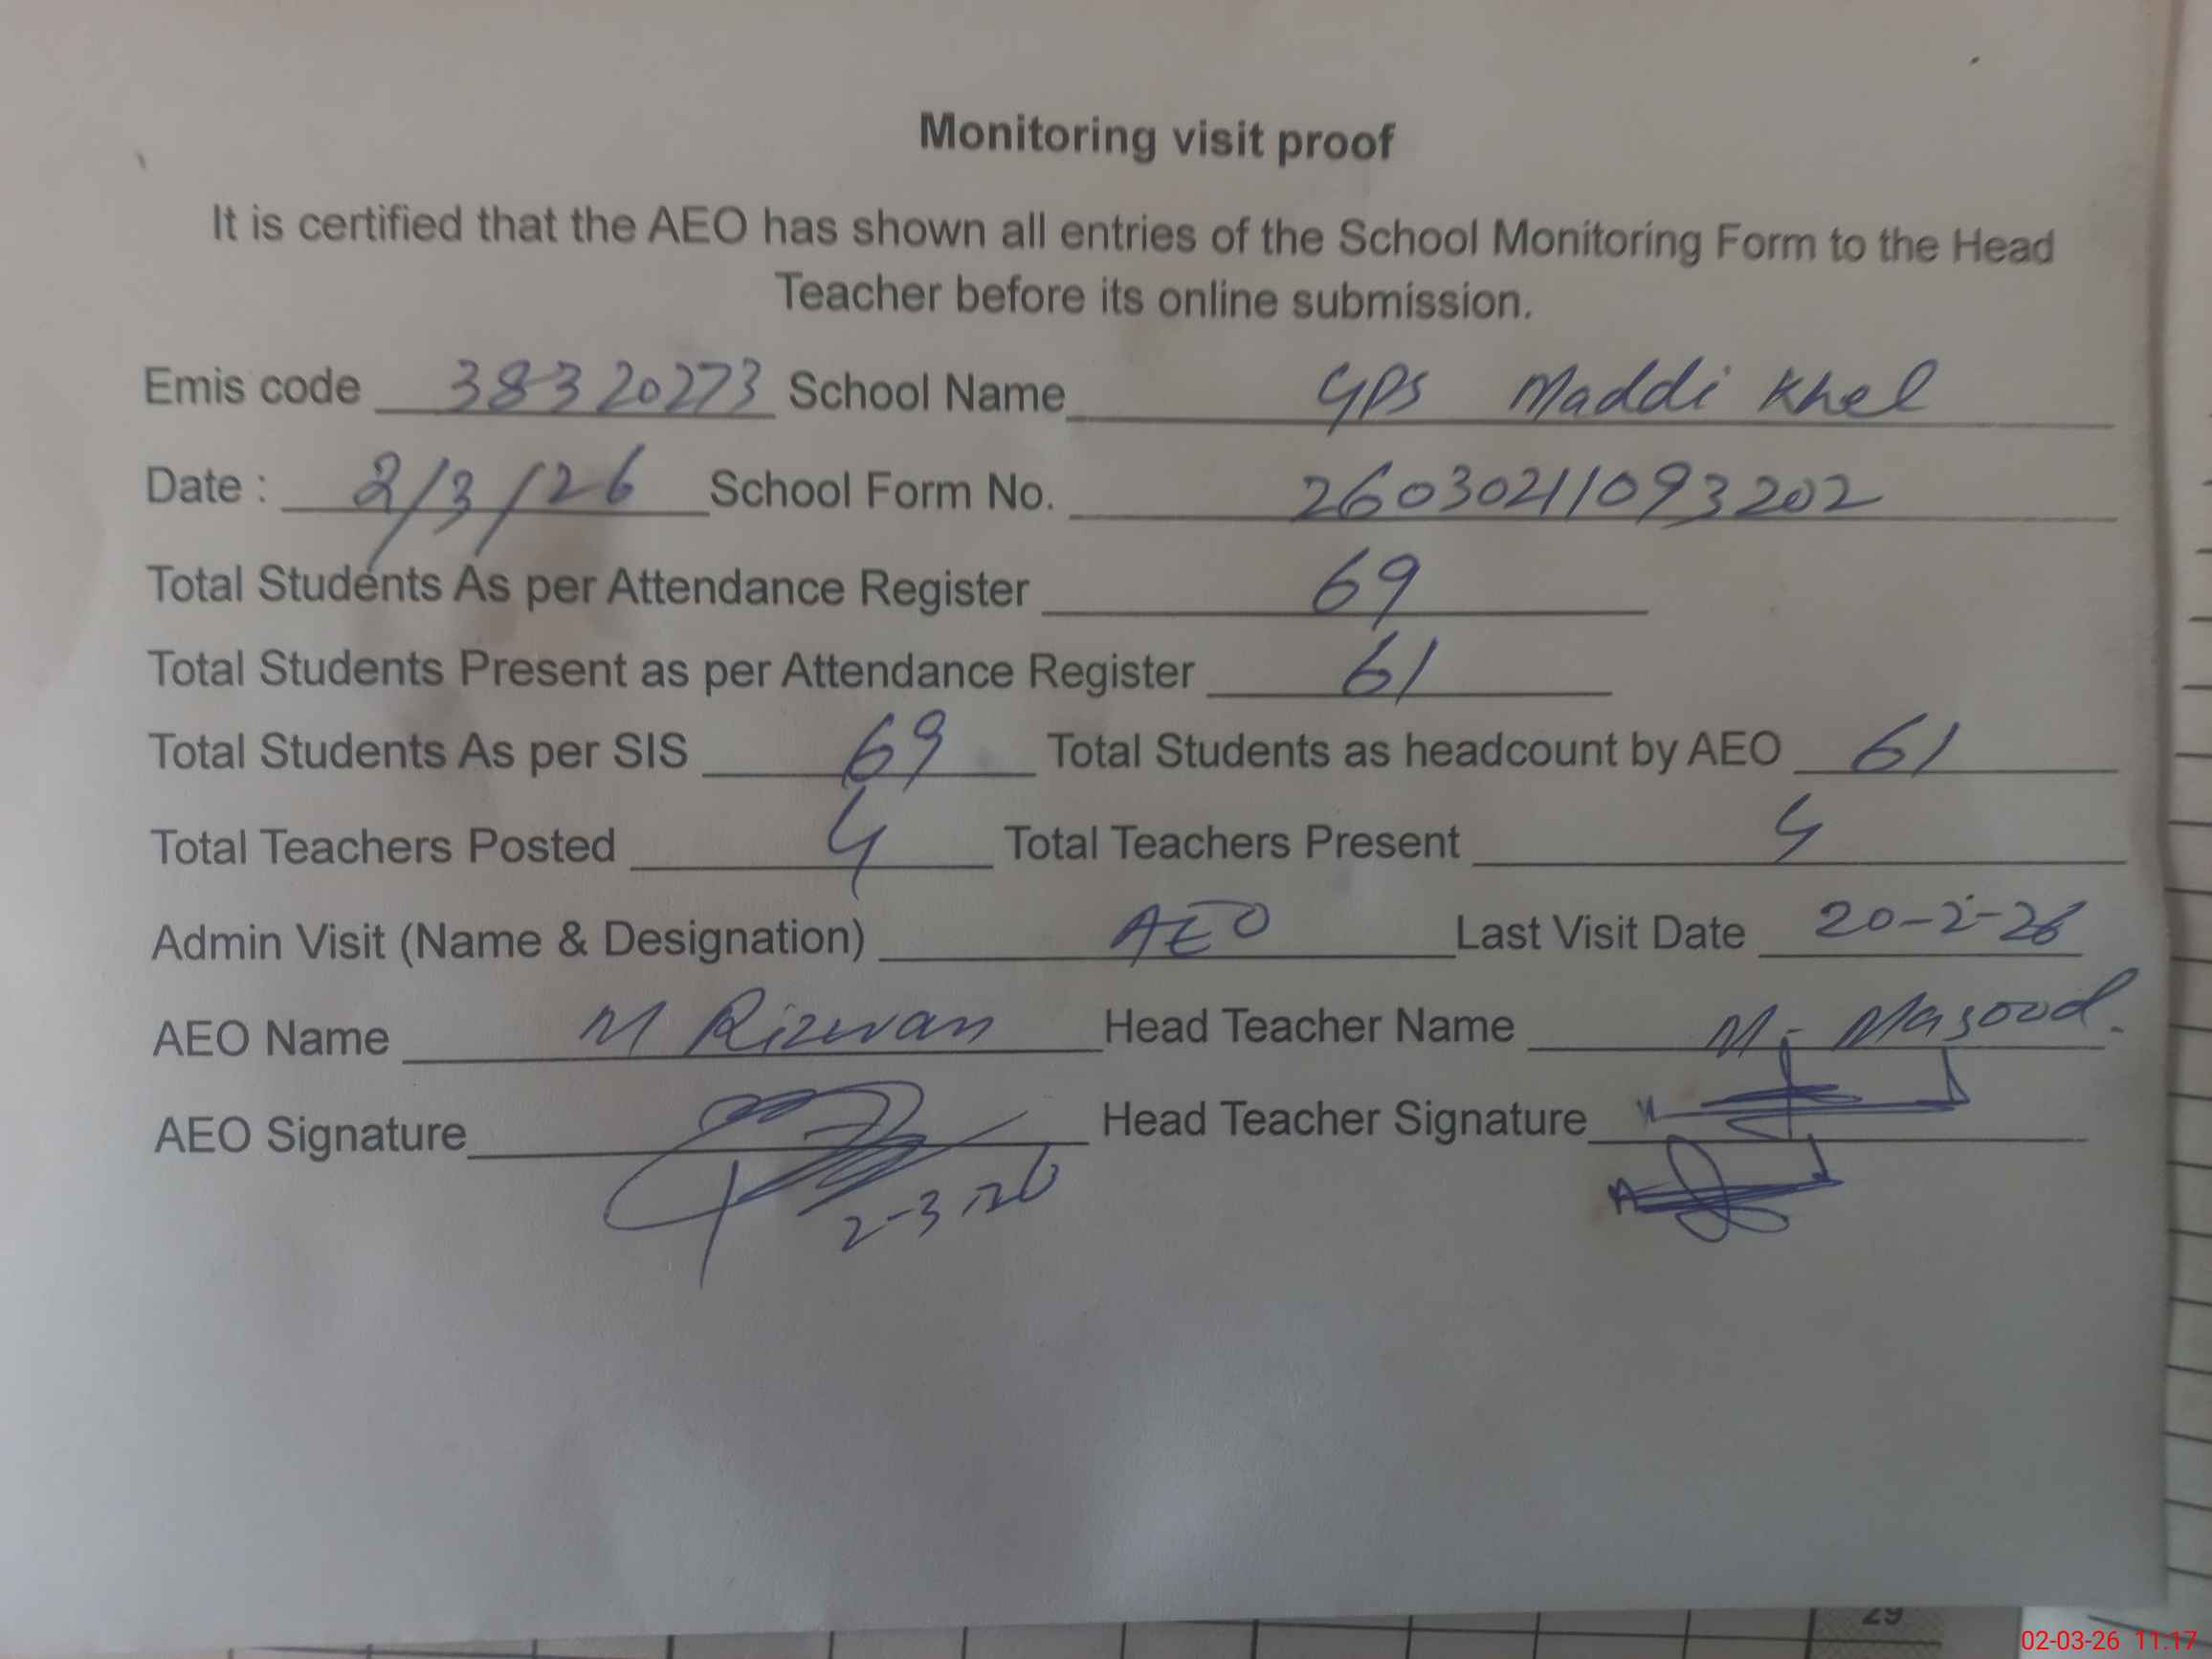 Monitoring visit proof
It is certified that the AEO has shown all entries of the School Monitoring Form to the Head
Teacher before its online submission.
Emis code 38320273 School Name GPS Maddi Khel
Date : 2/3/26 School Form No. 26030211093202
Total Students As per Attendance Register 69
Total Students Present as per Attendance Register 61
Total Students As per SIS 69 Total Students as headcount by AEO 61
Total Teachers Posted 4 Total Teachers Present 4
Admin Visit (Name & Designation) AEO Last Visit Date 20-2-26
AEO Name M Rizwan Head Teacher Name M. Masood.
AEO Signature Head Teacher Signature
2-3-26
29
02-03-26 11:17